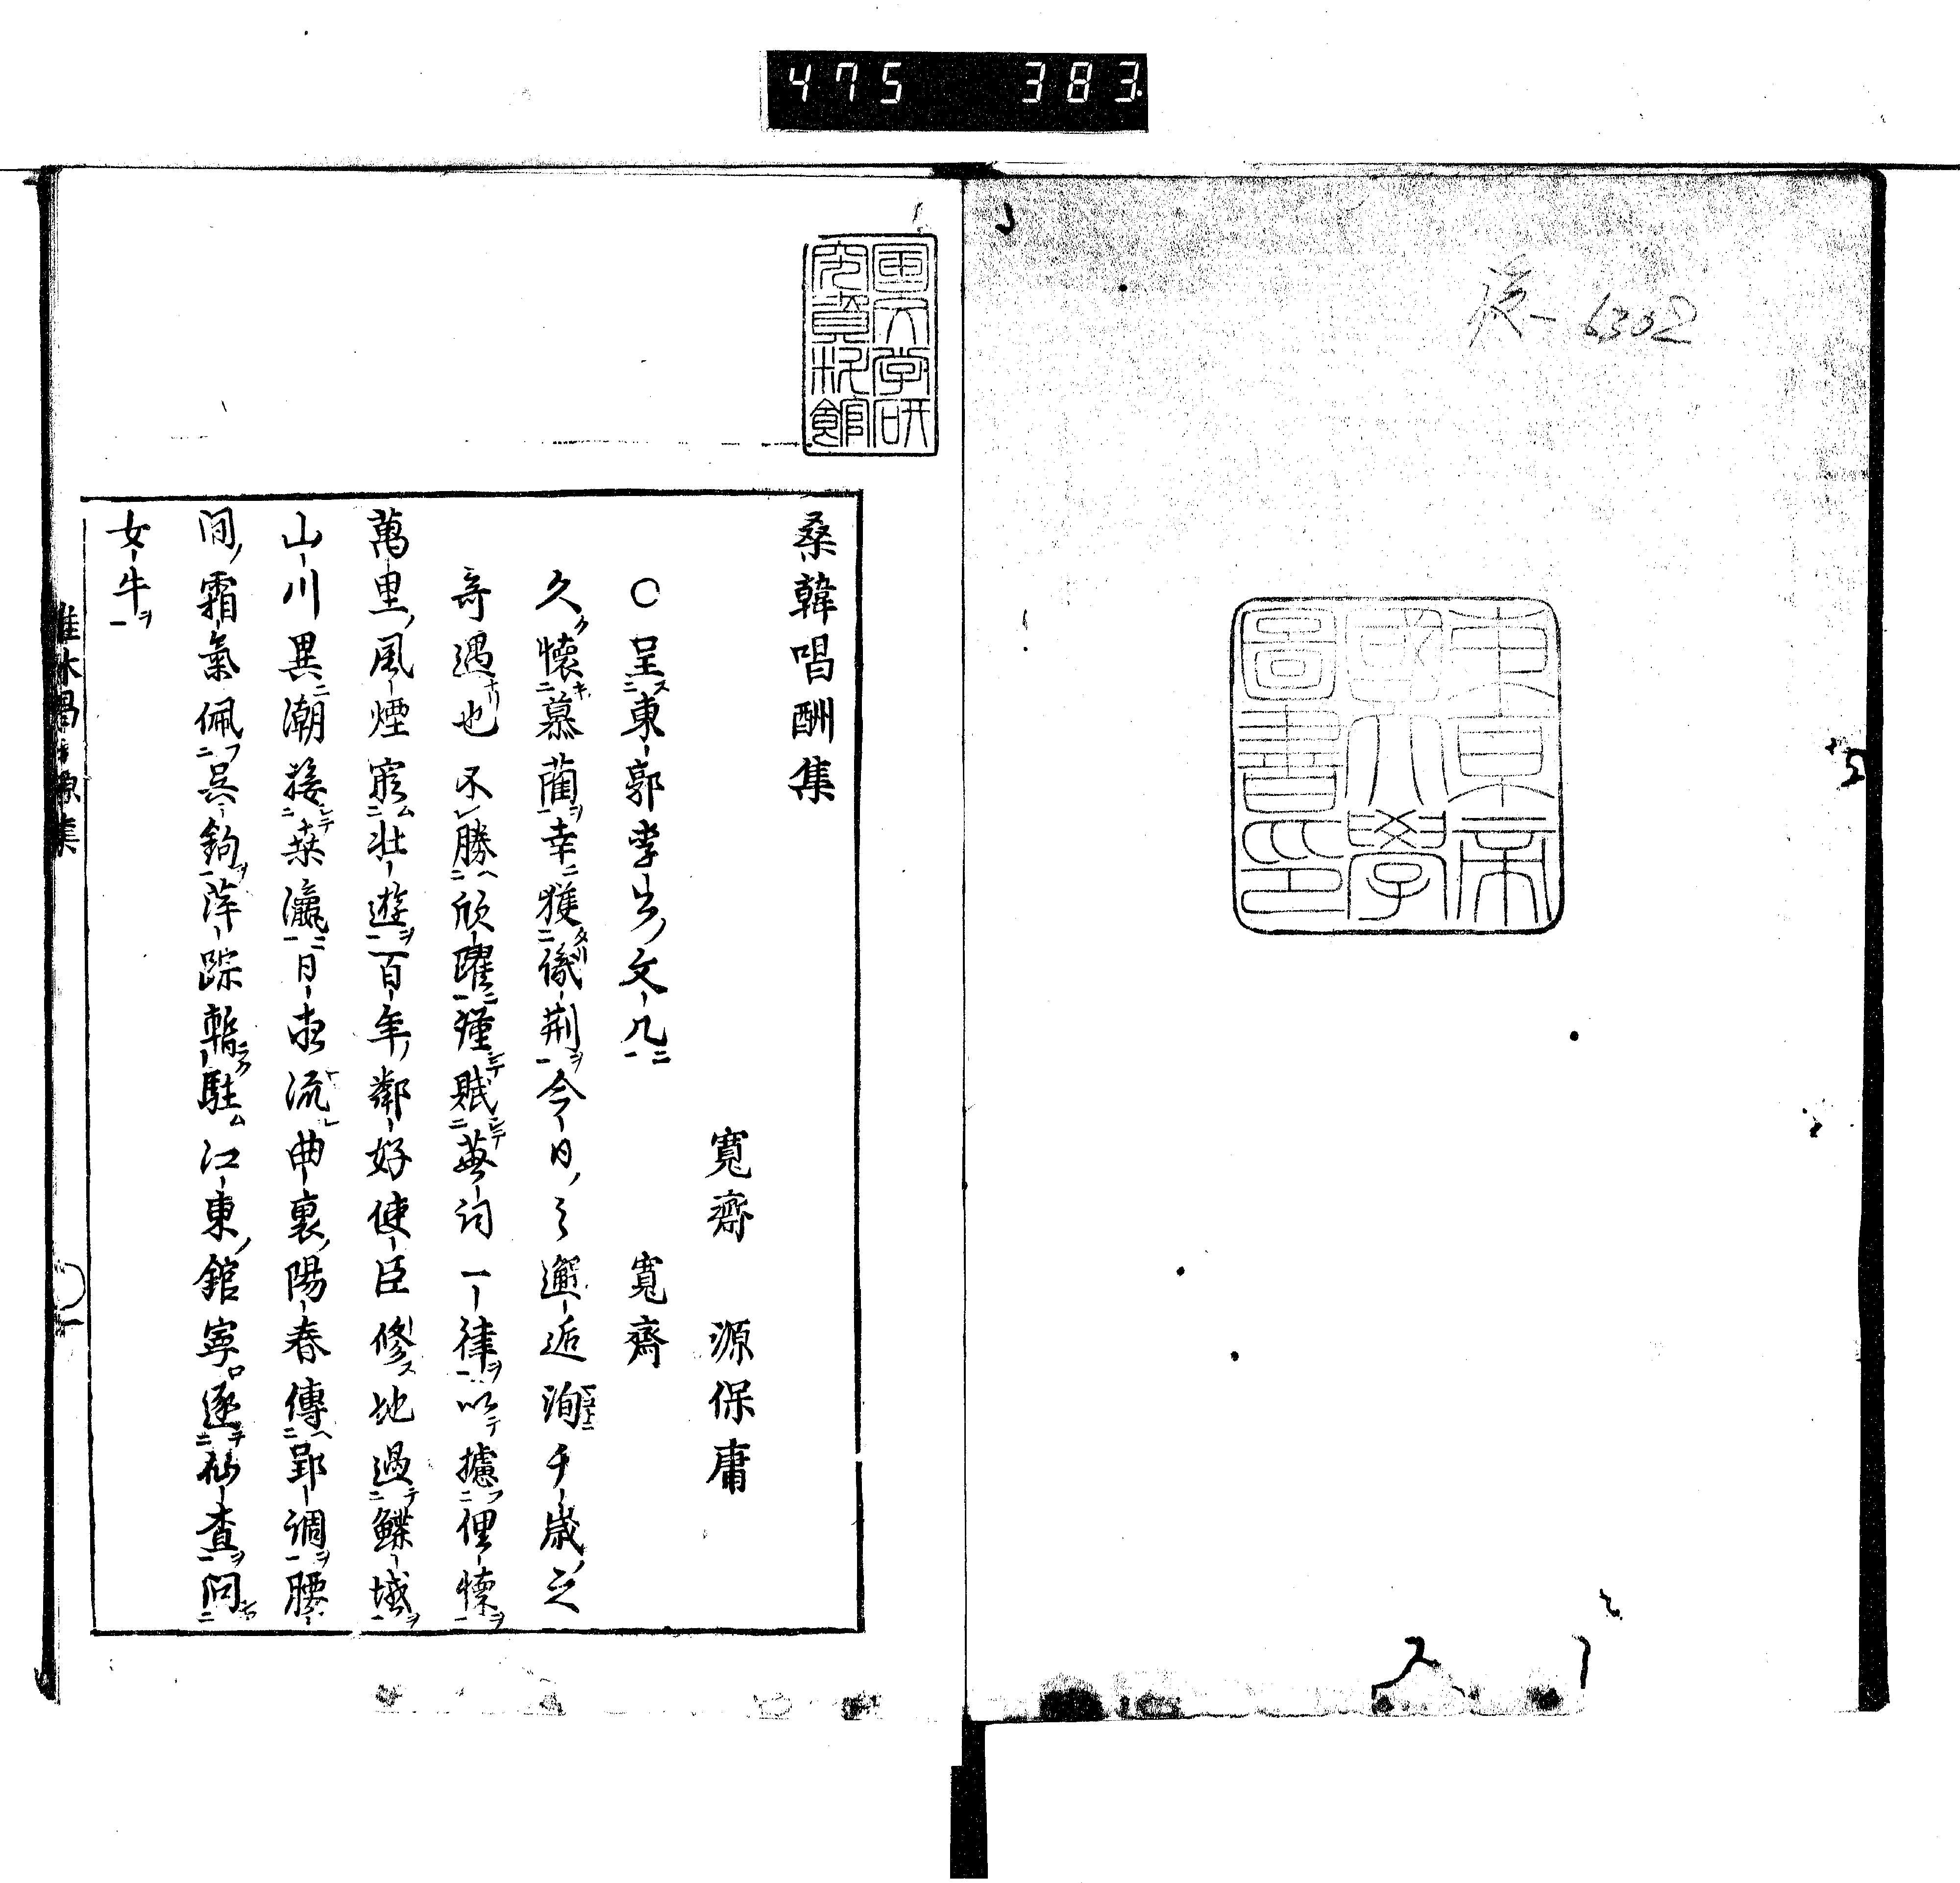 475 383
6302
東京帝
國大學
圖書印
国文学研
究資料館
桑韓唱酬集
寬齋 源保庸
○呈東郭李公文几 寬齋
久懷慕藺幸獲儀荊今日之邂逅洵千歲之
奇遇也不勝欣躍謹賦蕪詞一律以攄俚懷
萬里風煙窮壯遊百年鄰好使臣修地過鰈域
山川異潮接桒瀛日夜流曲裏陽春傳郢調腰
間霜氣佩吳鉤萍踪暫駐江東館寧逐仙查問
女牛